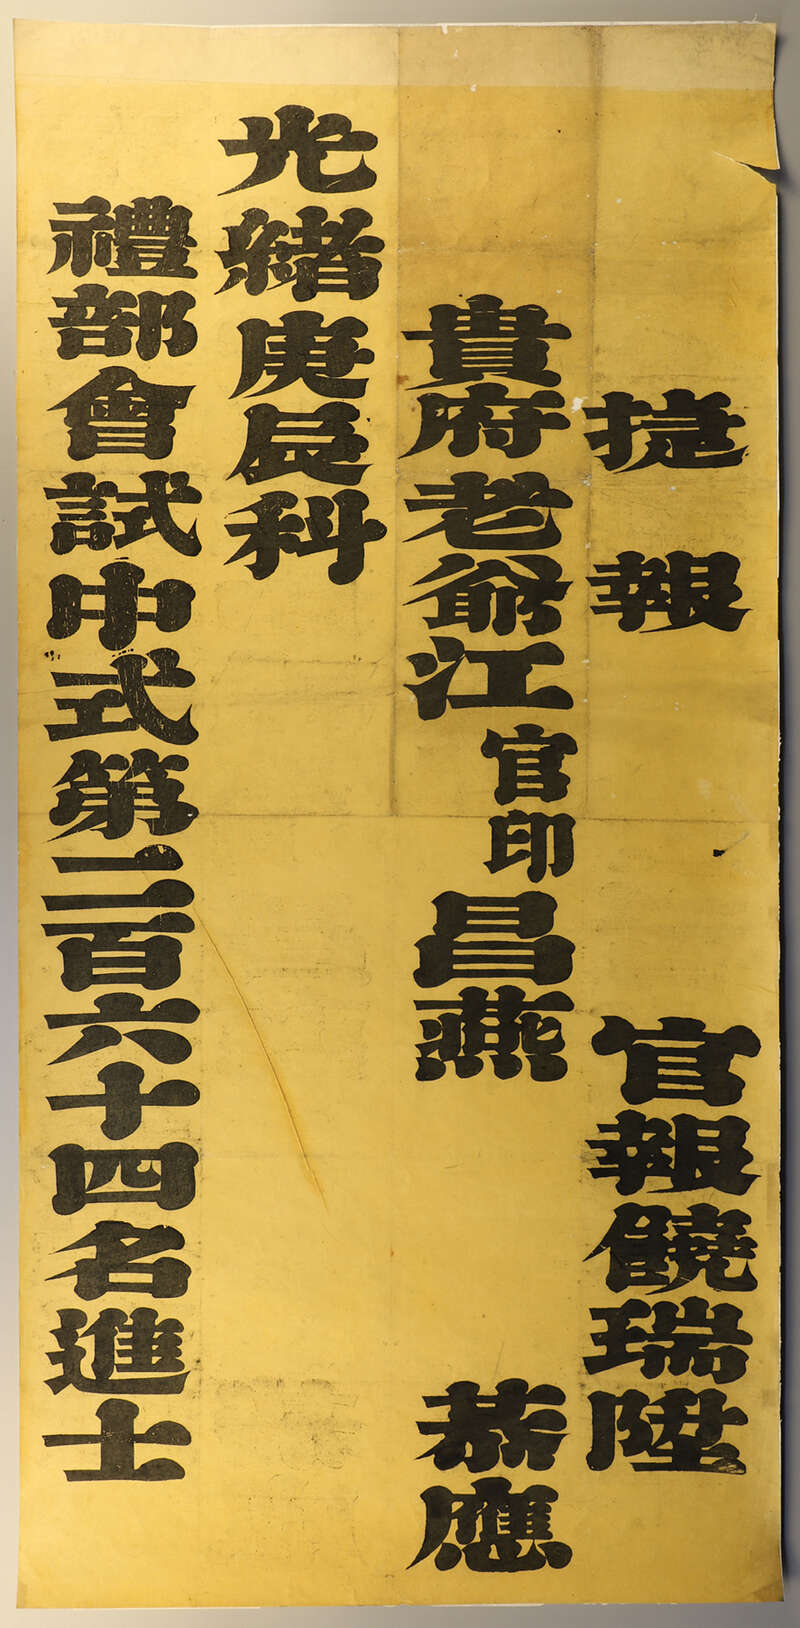 捷報 官報饒瑞陞
貴府老爺江官印昌燕 恭應
光緒庚辰科
禮部會試中式第二百六十四名進士